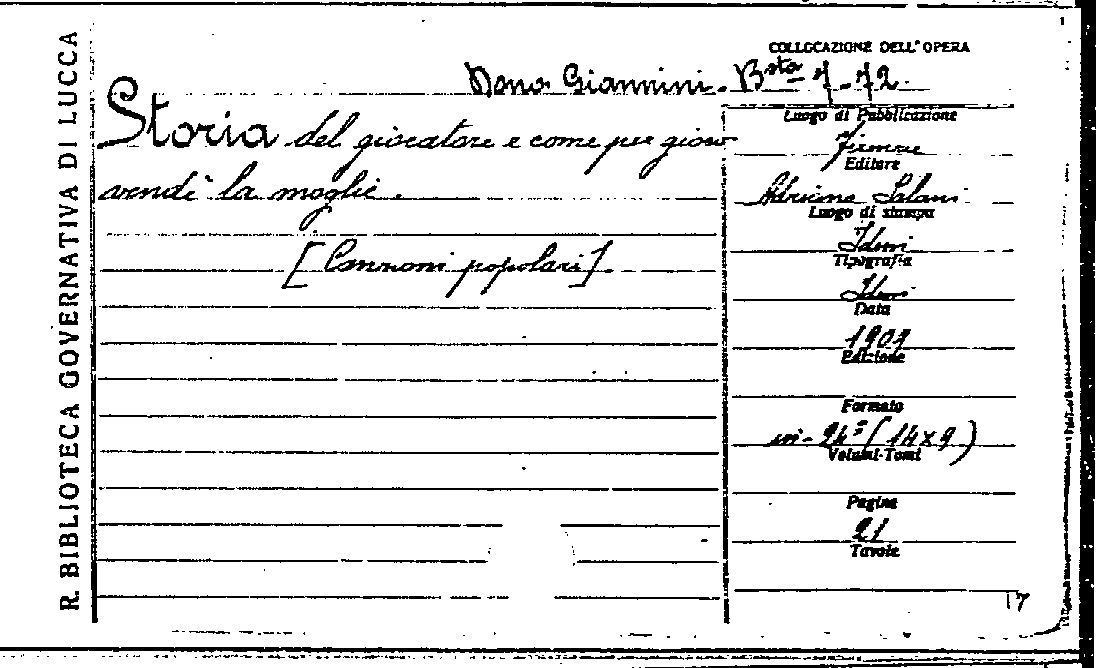 R. BIBLIOTECA GOVERNATIVA DI LUCCA
COLLOCAZIONE DELL'OPERA
Dono Giannini. B.sta 7-72.
Storia del giocatore e come per giuo
vendè la moglie.
[Canzoni popolari].
Luogo di Pubblicazione
Firenze
Editore
Adriano Salani
Luogo di stampa
Idem
Tipografia
Idem
Data
1901
Edizione
Formato
in-24° (14x9)
Volumi-Tomi
Pagine
21
Tavole
17